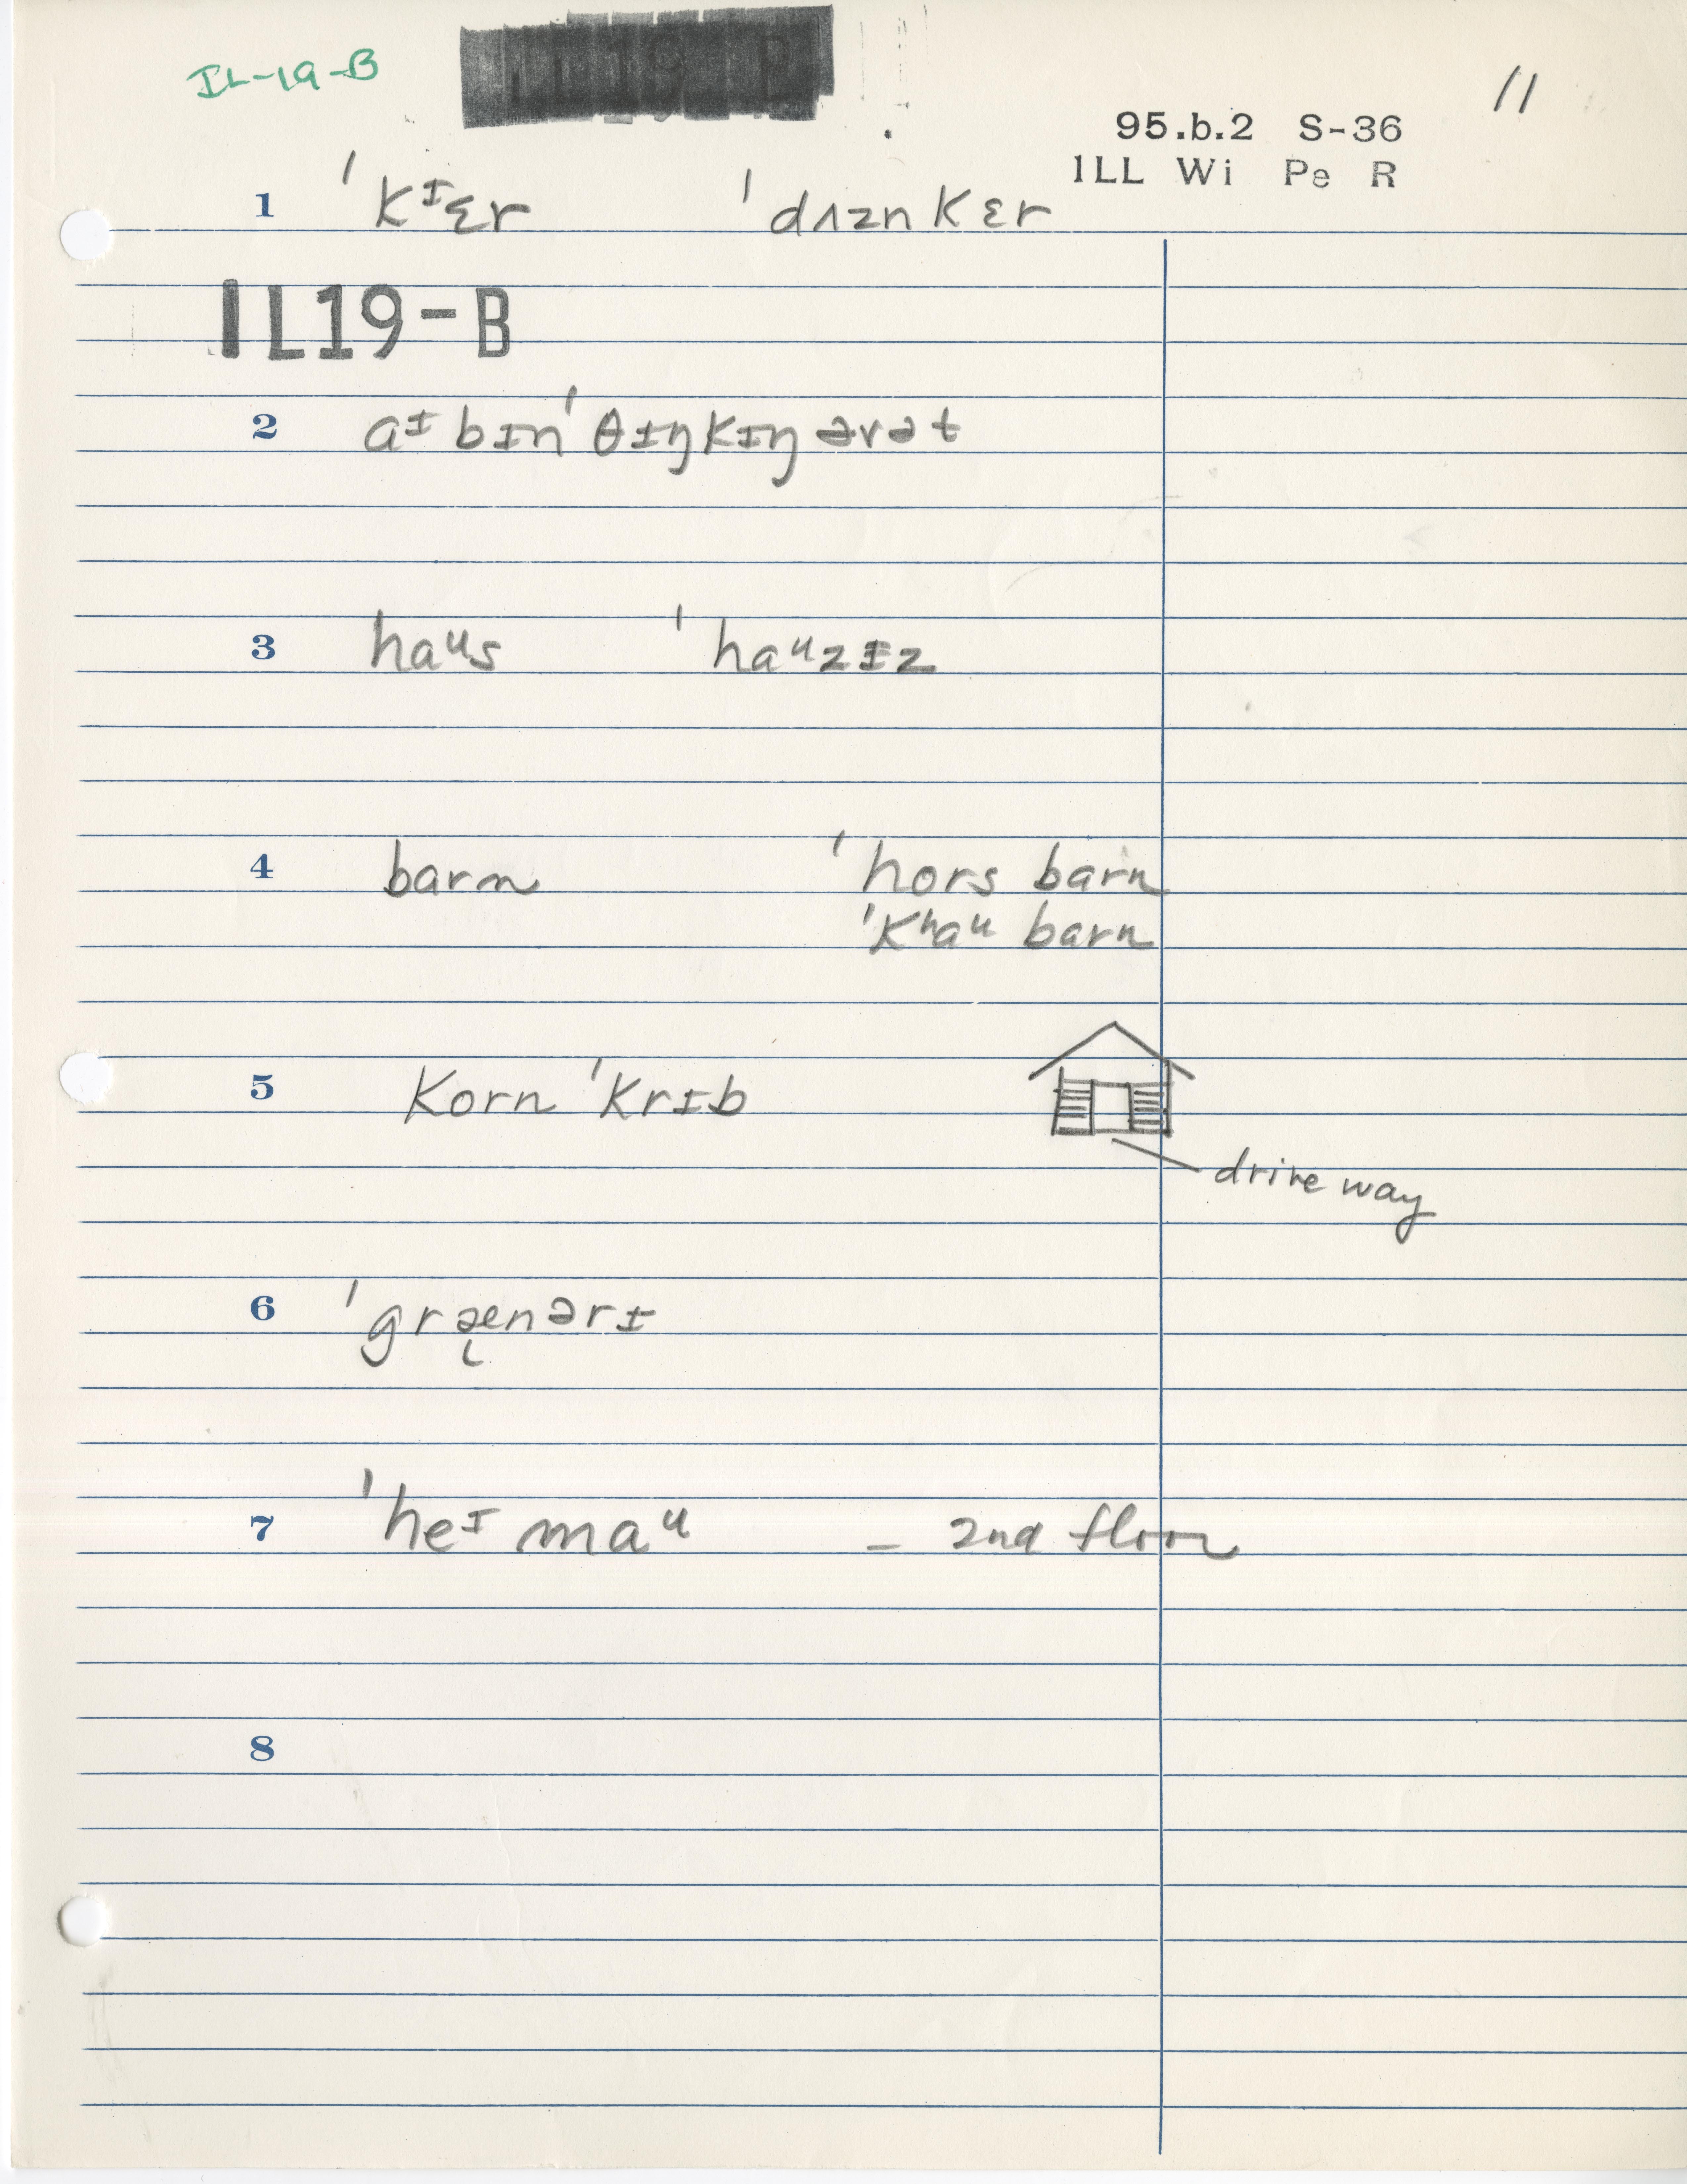 IL-19-B
11
95.b.2 S-36
ILL Wi Pe R
1 ˈkᴵɛr ˈdʌznkɛr
IL19-B
2 aᴵ bɪnˈθɪŋkɪŋ əvət
3 haᵘs ˈhaᵘzɪz
4 barn ˈhors barn
ˈkʰaᵘ barn
5 kornˈkrɪb
drive way
6 ˈgræ̨nərɪ
7 ˈheᴵ maᵘ – 2nd floor
8